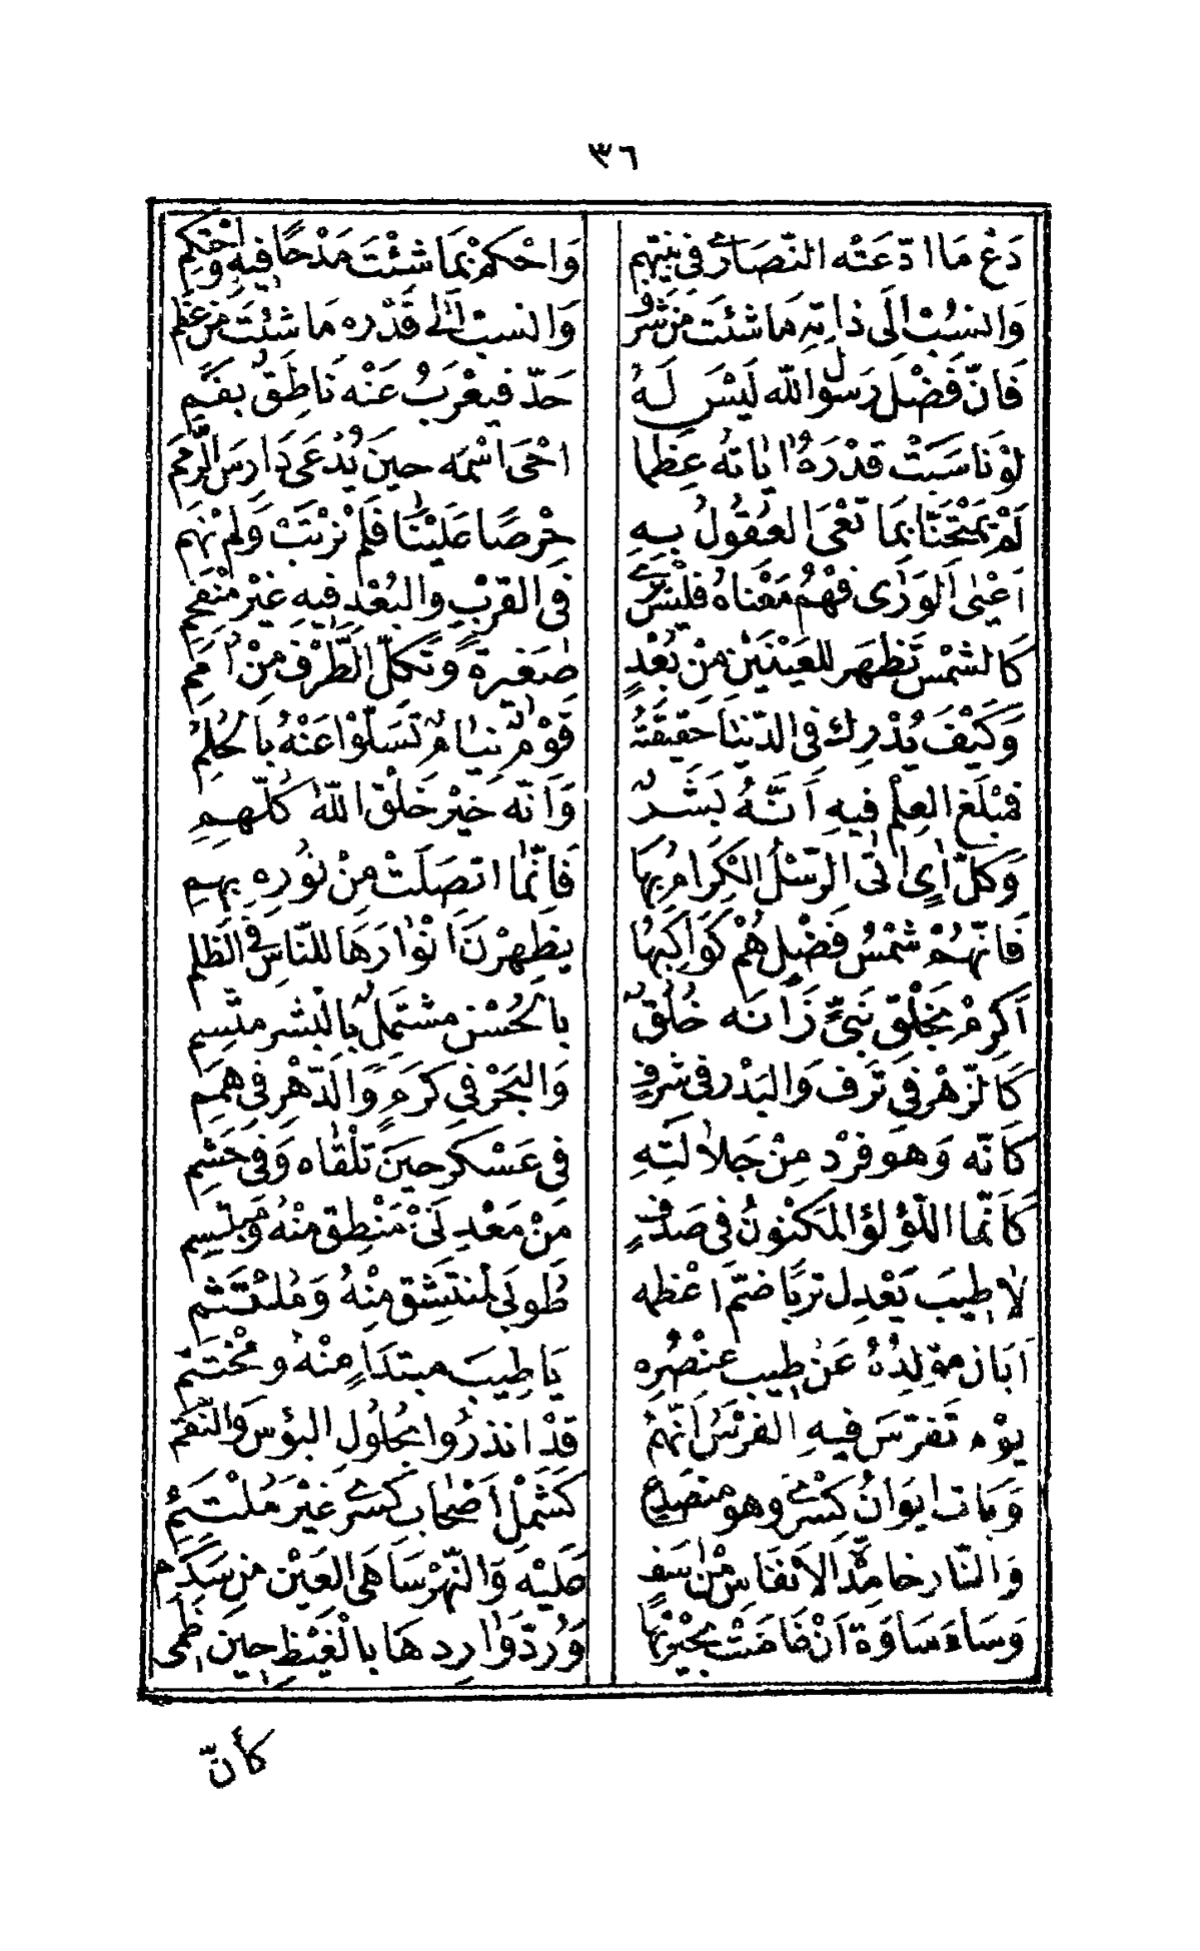 ٣٦
دَعْ مَا ادَّعَتْه النَّصَارٰے فِی نَبِیِّهِم وَاحْكُمْ بِمَا شِئْتَ مَدْحًا فِیهِ وَاحْتَكِمِ
وَانْسُبْ اِلٰی ذَاتِهٖ مَا شِئْتَ مِنْ شَرَفٍ وَانْسُبْ اِلٰی قَدْرِه مَا شِئْتَ مِنْ عِظَمِ
فَاِنَّ فَضْلَ رَسُولِ اللّٰه لَیْسَ لَهُ حَدٌّ فَیُعْرِبُ عَنْه نَاطِقٌ بِفَمِ
لَوْ نَاسَبَتْ قَدْرَهُ اٰیَاتُه عِظَمًا اَحْیَی اسْمُه حِینَ یُدْعٰی دَارِسَ الرِّمَمِ
لَمْ یَمْتَحِنَّا بِمَا تَعْیَ العُقُولُ بِهِ حِرْصًا عَلَیْنَا فَلَمْ نَرْتَبْ وَلَمْ نَهِمِ
اَعْیَی الْوَرٰی فَهْمُ مَعْنَاهُ فَلَیْسَ یُرٰے فِی القُرْبِ وَالبُعْدِ فِیهِ غَیْرُ مُنْفَحِمِ
كَالشَّمْسِ تَظْهَر لِلعَیْنَیْنِ مِنْ بُعُدٍ صَغِیرَةً وَتُكِلُّ الطَّرْفَ مِنْ اَمَمِ
وَكَیْفَ یُدْرِكُ فِی الدُّنْیَا حَقِیقَتَهُ قَوْمٌ نِیَامٌ تَسَلَّوْا عَنْهُ بِالحُلُمِ
فَمَبْلَغُ العِلْمِ فِیهِ اَنَّهُ بَشَرٌ وَاَنَّه خَیْرُ خَلْقِ اللّٰهِ كُلِّهِمِ
وَكُلُّ اٰیٍ اَتَی الرُّسْلُ الكِرَامُ بِهَا فَاِنَّمَا اتَّصَلَتْ مِنْ نُورِهِ بِهِمِ
فَاِنَّهُ شَمْسُ فَضْلٍ هُمْ كَوَاكِبُهَا یُظْهِرْنَ اَنْوَارَهَا لِلنَّاسِ فِی الظُّلَمِ
اَكْرِمْ بِخَلْقِ نَبِیٍّ زَانَه خُلُقٌ بِالحُسْنِ مُشْتَمِلٌ بِالْبِشْرِ مُتَّسِمِ
كَالزَّهْرِ فِی تَرَفٍ وَالبَدْرِ فِی شَرَفٍ وَالبَحْرِ فِی كَرَمٍ وَالدَّهْرِ فِی هِمَمِ
كَاَنَّه وَهُو فَرْدٌ مِنْ جَلَالَتِهِ فِی عَسْكَرٍ حِینَ تَلْقَاه وَفِی حَشَمِ
كَاَنَّمَا اللُّؤْلُؤُ الْمَكْنُونُ فِی صَدَفٍ مِنْ مَعْدِنَیْ مَنْطِقٍ مِنْهُ وَمُبْتَسِمِ
لَا طِیبَ یَعْدِلُ تُرْبًا ضَمَّ اَعْظُمَه طُوبٰی لِمُنْتَشِقٍ مِنْهُ وَمُلْتَثِمِ
اَبَانَ مَوْلِدُهُ عَنْ طِیبِ عُنْصُرِه یَا طِیبَ مُبْتَدَاٍ مِنْهُ وَمُخْتَتَمِ
یَوْم تَفَرَّسَ فِیهِ الفُرْسُ اَنَّهُمُ قَدْ اُنْذِرُوا بِحُلُولِ البُؤْسِ وَالنِّقَمِ
وَبَاتَ اِیوَانُ كِسْرٰے وَهُو مُنْصَدِعٌ كَشَمْلِ اَصْحَابِ كِسْرٰے غَیْرَ مُلْتَئِمِ
وَالنَّارُ خَامِدَةُ الاَنْفَاسِ مِنْ اَسَفٍ عَلَیْهِ وَالنَّهْرُ سَاهِی العَیْنِ مِنْ سَدَمِ
وَسَاءَ سَاوَةَ اَنْ غَاضَتْ بُحَیْرَتُهَا وَرُدَّ وَارِدُهَا بِالْغَیْظِ حِینَ ظَمِی
كأنّ